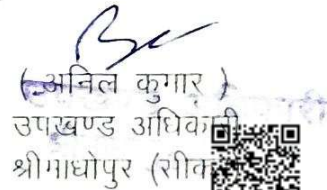 ( अनिल कुमार )
उपखण्ड अधिकारी
श्रीमाधोपुर (सीक